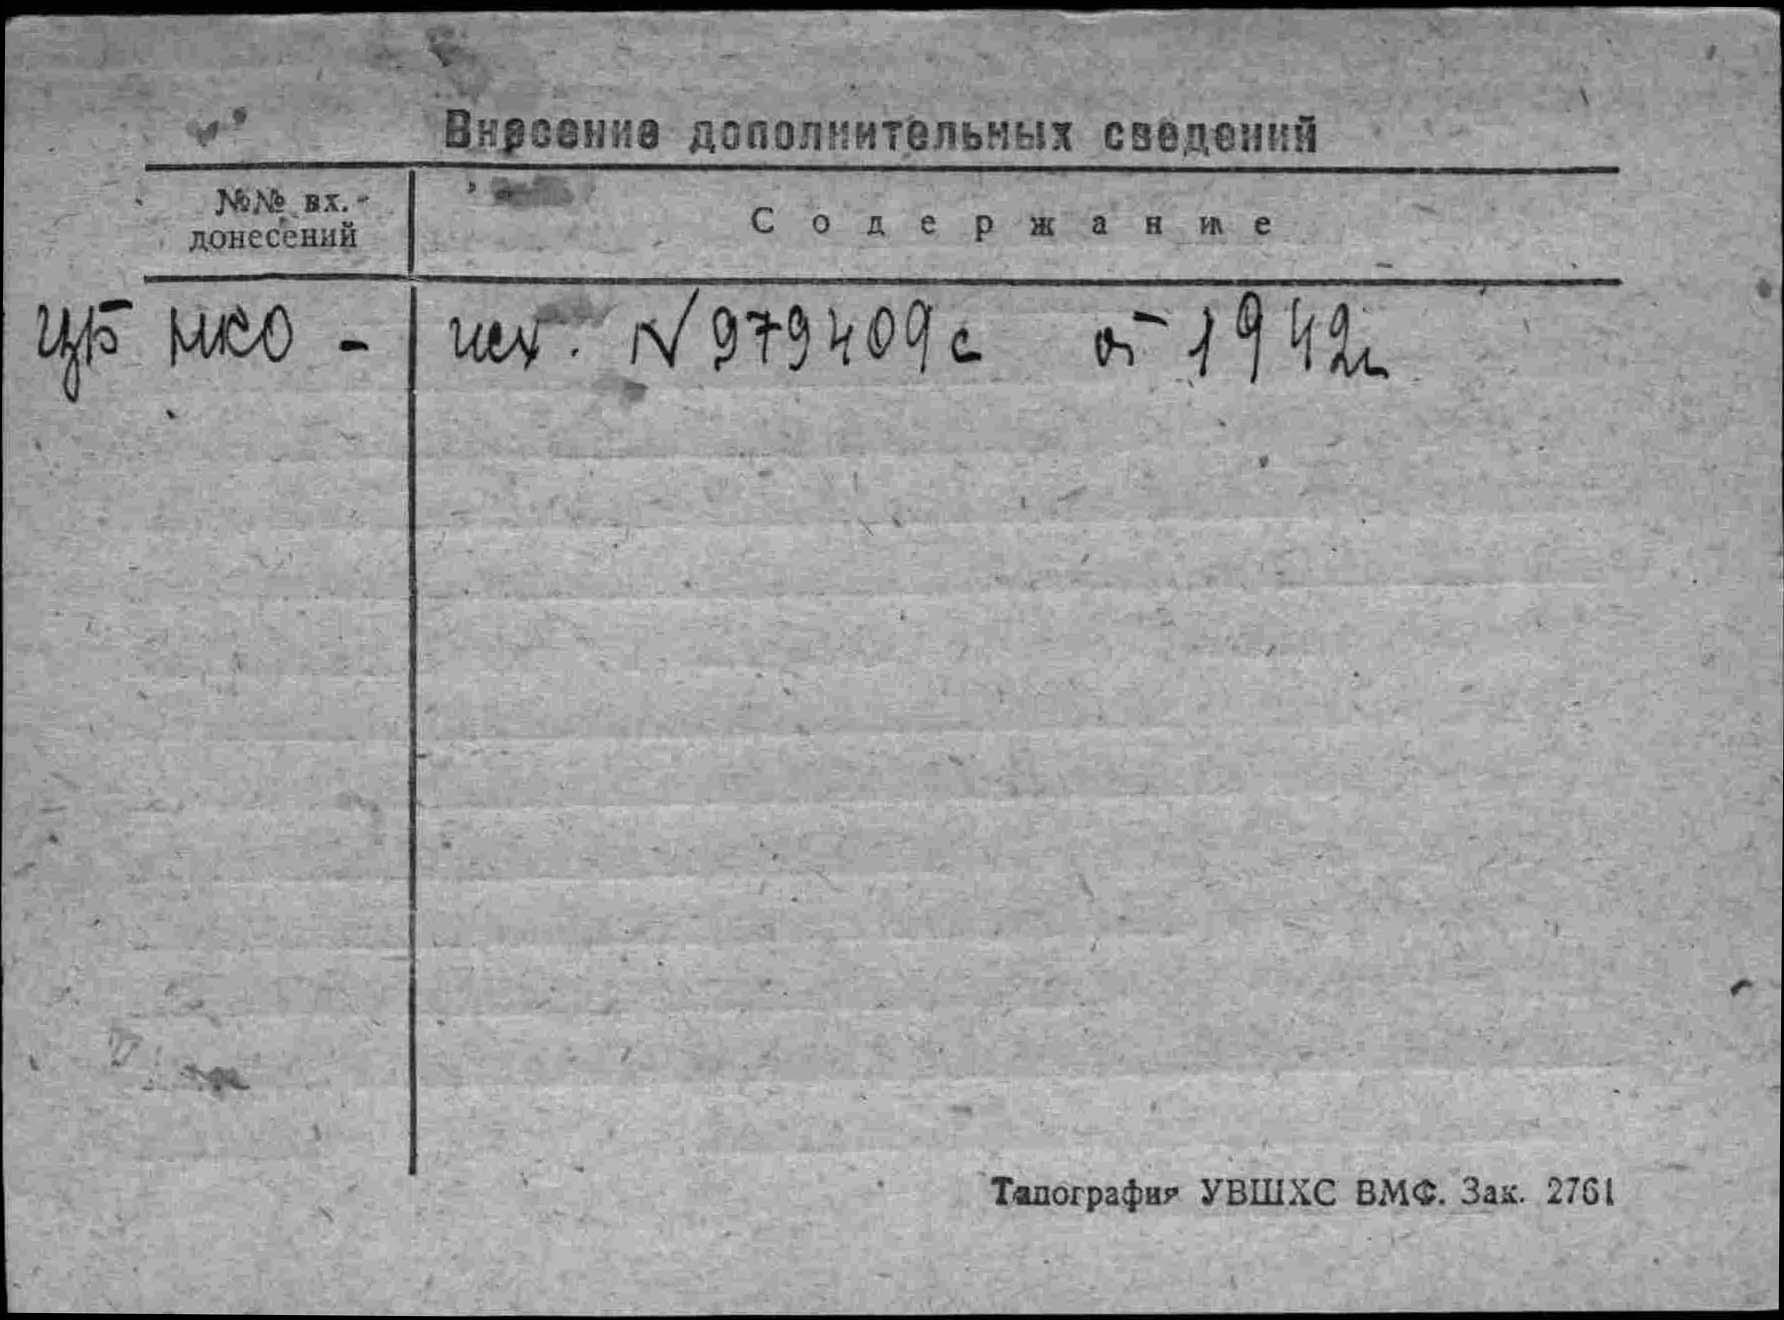 Внесение дополнительных сведений
№№ вх.
донесений
Содержание
ЦБ МСО - исх. № 979409с от 1942г.
Типография УВШХС ВМФ. Зак. 2761